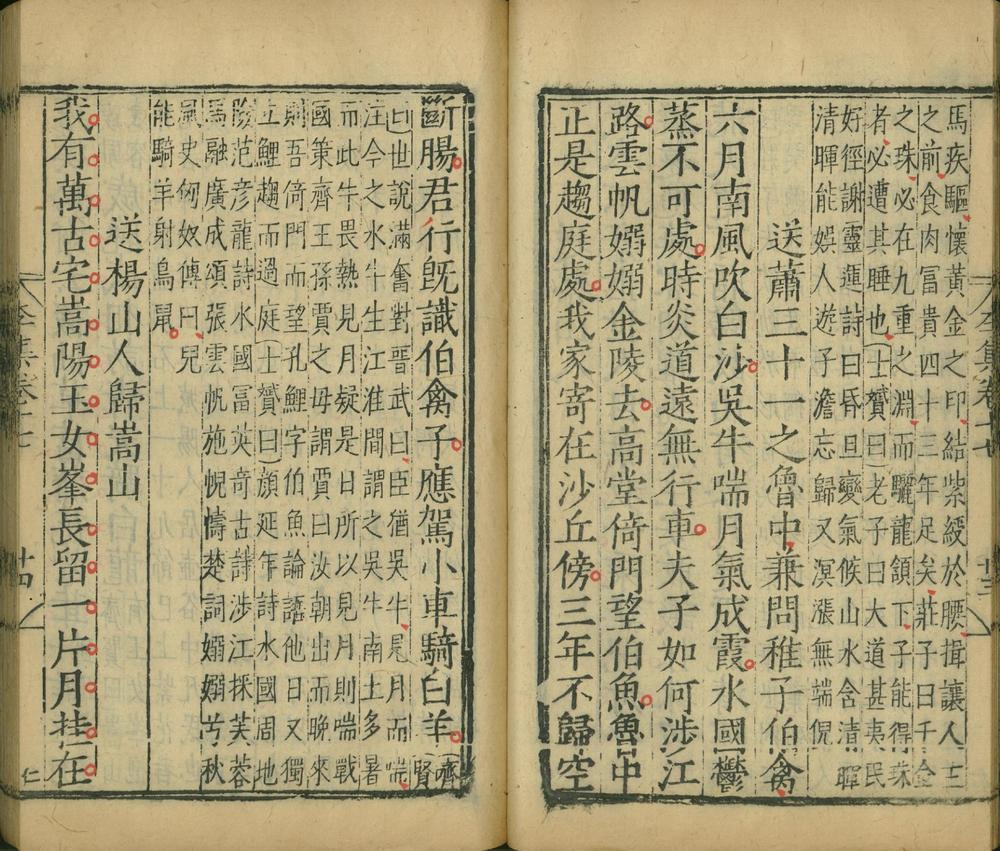 馬疾驅懷黃金之印結紫綬於腰揖讓人主
之前食肉富貴四十三年足矣莊子曰千金
之珠必在九重之淵而驪龍頷下子能得珠
者必遭其睡也(士贇曰)老子曰大道甚夷民
好徑謝靈運詩曰昏旦變氣候山水含清暉
清暉能娛人遊子澹忘歸又溟漲無端倪
送蕭三十一之魯中兼問稚子伯禽
六月南風吹白沙吳牛喘月氣成霞水國鬱
蒸不可處時炎道遠無行車夫子如何涉江
路雲帆嫋嫋金陵去高堂倚門望伯魚魯中
正是趨庭處我家寄在沙丘傍三年不歸空
斷腸君行旣識伯禽子應駕小車騎白羊(齊賢
曰)世說滿奮對晉武曰臣猶吳牛見月而喘
注今之水牛生江淮間謂之吳牛南土多暑
而此牛畏熱見月疑是日所以見月則喘戰
國策齊王孫賈之母謂賈曰汝朝出而晚來
則吾倚門而望孔鯉字伯魚論語他日又獨
立鯉趨而過庭(士贇曰)顔延年詩水國周地
險范彦龍詩水國富英奇古詩涉江採芙蓉
馬融廣成頌張雲帆施蜺幬楚詞嫋嫋兮秋
風史匈奴傳曰兒
能騎羊射鳥鼠
送楊山人歸嵩山
我有萬古宅嵩陽玉女峯長留一片月挂在
廿四
仁